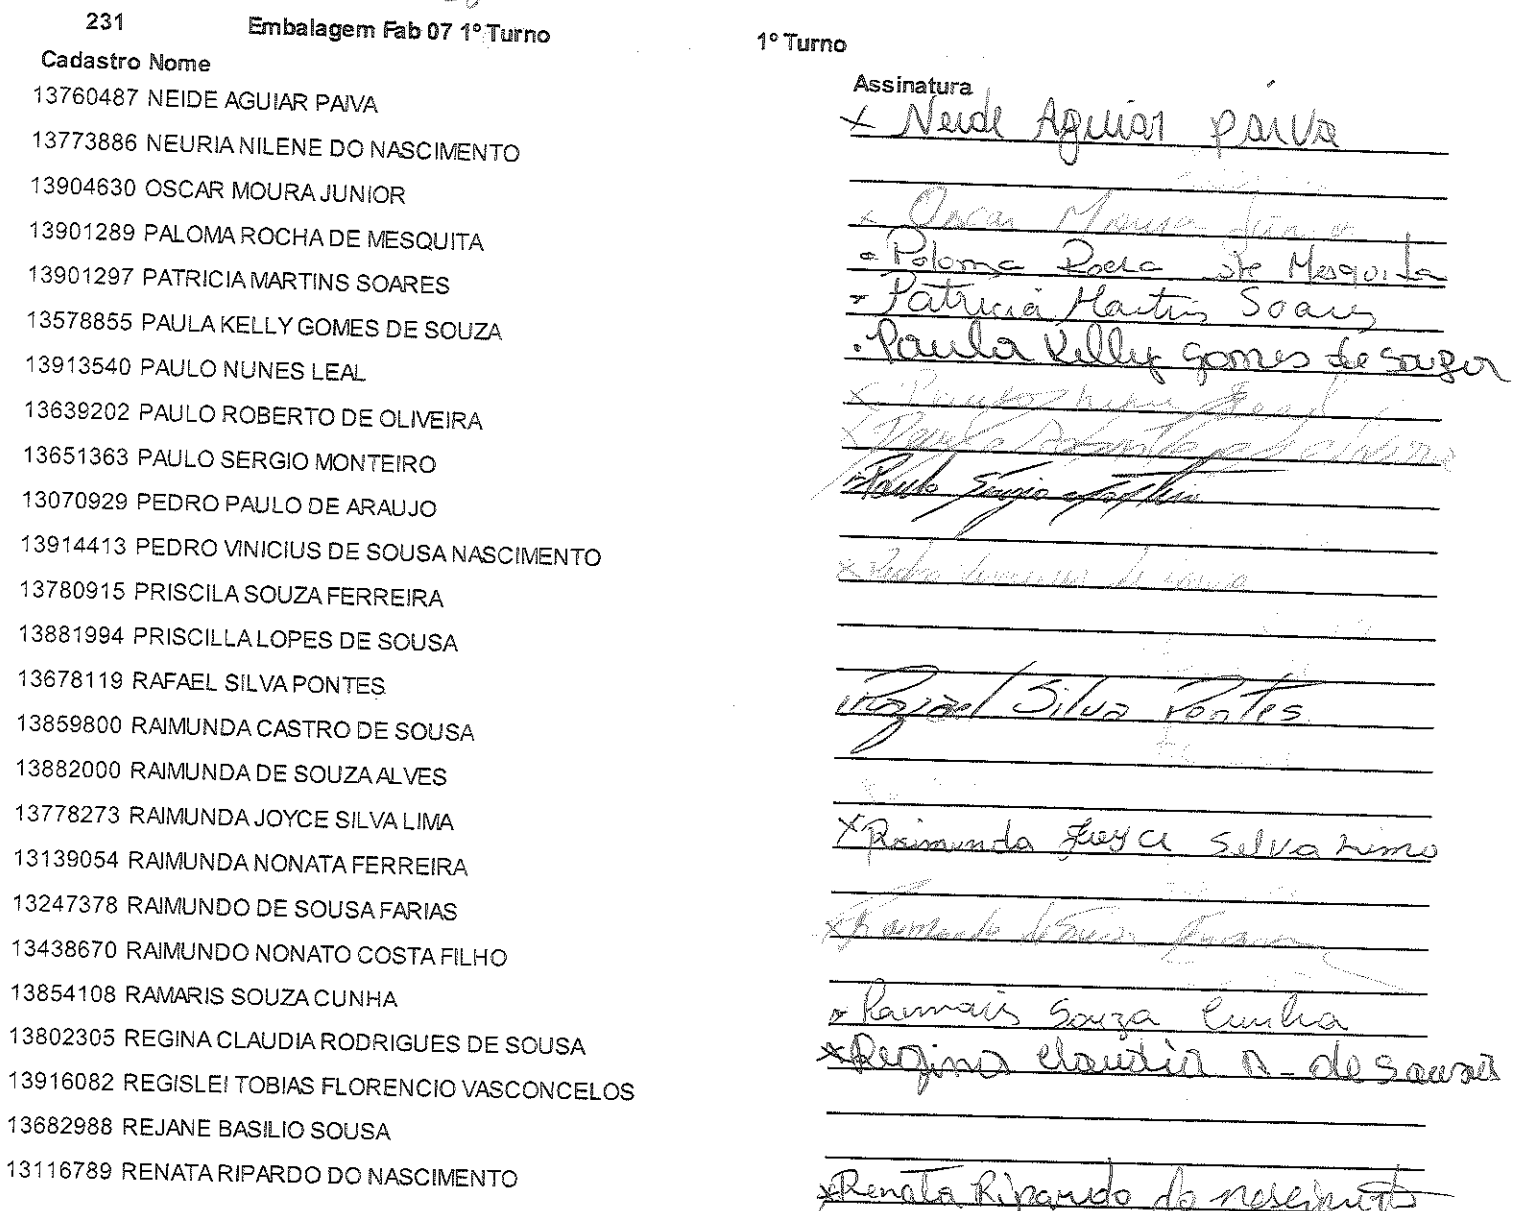 231 Embalagem Fab 07 1º Turno 1º Turno
Cadastro Nome Assinatura
13760487 NEIDE AGUIAR PAIVA Neide Aguiar Paiva
13773886 NEURIA NILENE DO NASCIMENTO
13904630 OSCAR MOURA JUNIOR Oscar Moura Júnior
13901289 PALOMA ROCHA DE MESQUITA Paloma Rocha de Mesquita
13901297 PATRICIA MARTINS SOARES Patricia Martins Soares
13578855 PAULA KELLY GOMES DE SOUZA Paula Kelly Gomes de Souza
13913540 PAULO NUNES LEAL Paulo Nunes Leal
13639202 PAULO ROBERTO DE OLIVEIRA Paulo Roberto de Oliveira
13651363 PAULO SERGIO MONTEIRO Paulo Sergio
13070929 PEDRO PAULO DE ARAUJO
13914413 PEDRO VINICIUS DE SOUSA NASCIMENTO Pedro Vinicius de Sousa
13780915 PRISCILA SOUZA FERREIRA
13881994 PRISCILLA LOPES DE SOUSA
13678119 RAFAEL SILVA PONTES Rafael Silva Pontes
13859800 RAIMUNDA CASTRO DE SOUSA
13882000 RAIMUNDA DE SOUZA ALVES
13778273 RAIMUNDA JOYCE SILVA LIMA Raimunda Joyce Silva Lima
13139054 RAIMUNDA NONATA FERREIRA
13247378 RAIMUNDO DE SOUSA FARIAS Raimundo de Sousa Farias
13438670 RAIMUNDO NONATO COSTA FILHO
13854108 RAMARIS SOUZA CUNHA Ramaris Souza Cunha
13802305 REGINA CLAUDIA RODRIGUES DE SOUSA Regina Claudia R. de Sousa
13916082 REGISLEI TOBIAS FLORENCIO VASCONCELOS
13682988 REJANE BASILIO SOUSA
13116789 RENATA RIPARDO DO NASCIMENTO Renata Ripardo do nascimento